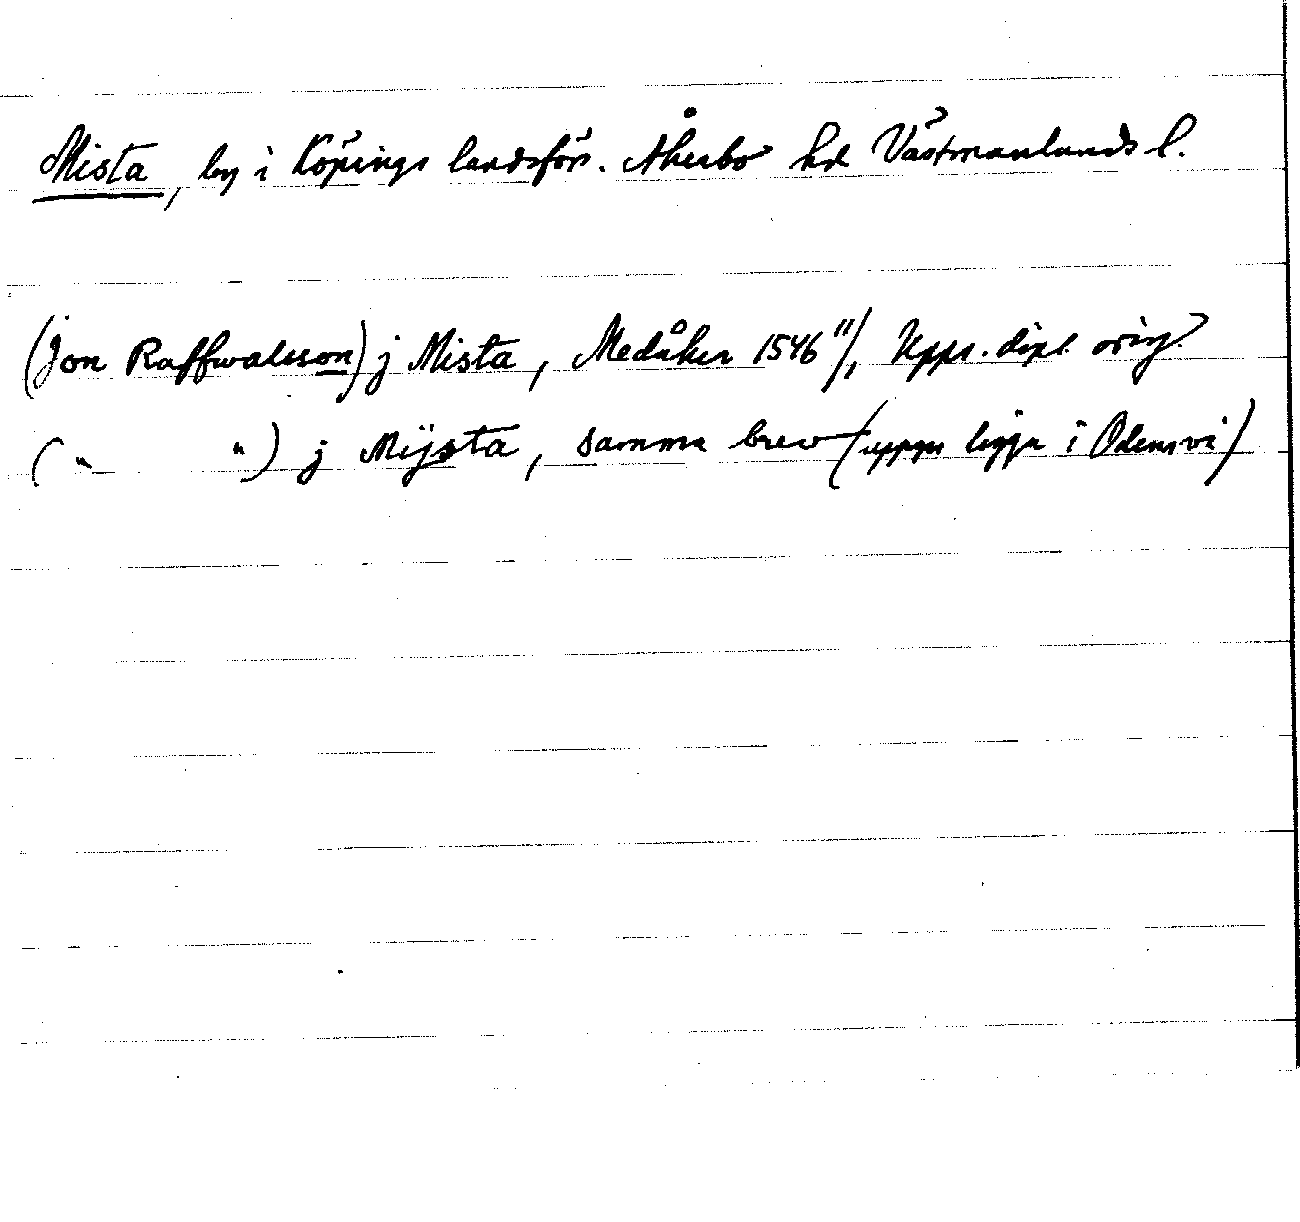 Mista, by i Köpings landsförs. Åkerbo hd Västmanlands l.
(Jon Raffwalsson) j Mista, Medåker 1546 11/1 Upps. dipl. orig.
( " " ) j Mijsta, samma brev (uppgs ligga i Odensvi)